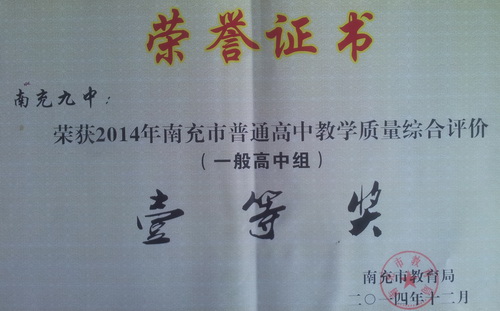 荣誉证书
南充九中：
荣获2014年南充市普通高中教学质量综合评价
（一般高中组）
壹等奖
南充市教育局
二〇一四年十二月